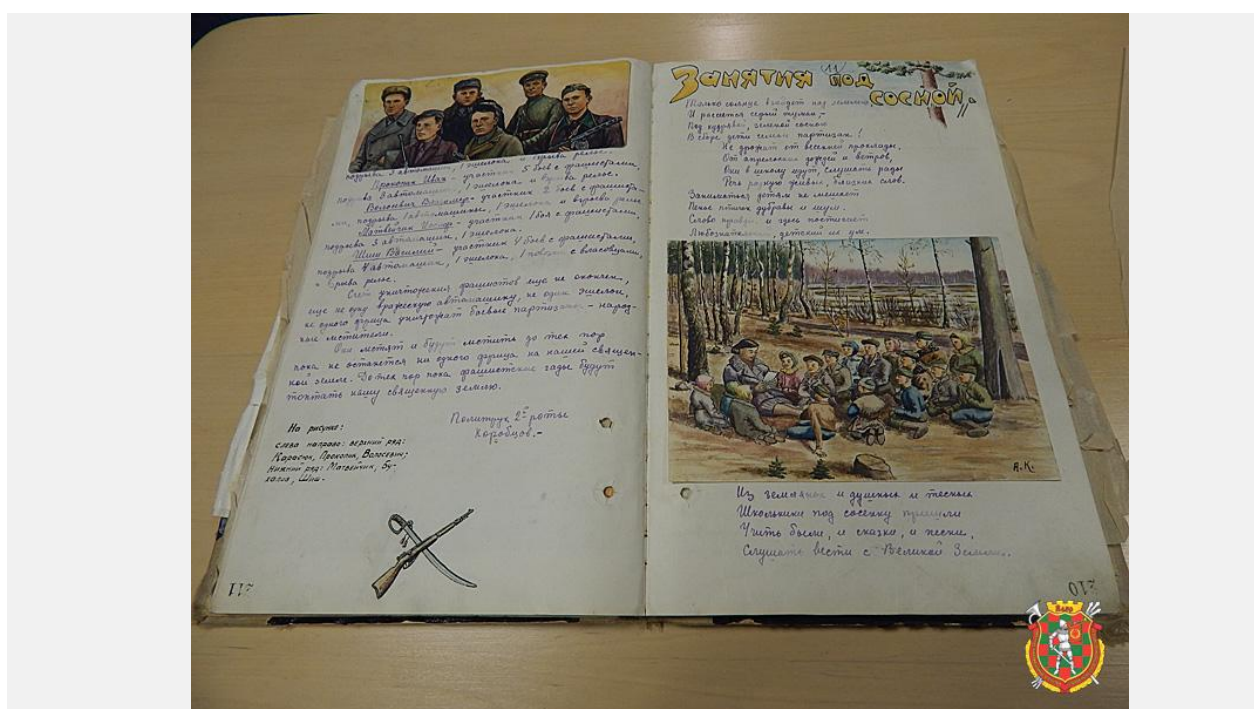 подрыва 3 автомашин, 1 эшелона и взрыва рельс.
Прокопик Иван – участник 5 боев с фашистами,
подрыва 3 автомашин, 1 эшелона и взрыва рельс.
участник 2 боев с фашиста-
ми, подрыва 1 автомашины, 1 эшелона и взрыва рельс.
Матвейчик – участник 1 боя с фашистами,
подрыва 3 автомашин, 1 эшелона.
Шиш Василий – участник 4 боев с фашистами,
подрыва 4 автомашин, 1 эшелона, 1 с власовцами,
взрыва рельс.
Счет уничтожения фашистов еще не окончен,
еще не одну вражескую автомашину, не один эшелон,
не одного фрица уничтожат боевые партизаны – народ-
ные мстители.
Они мстят и будут мстить до тех пор
пока не останется ни одного фрица на нашей священ-
ной земле. До тех пор пока фашистские гады будут
топтать нашу священную землю.
Политрук 2й роты
Коробцов.–
На рисунке:
слева направо: верхний ряд:
Карасюк, Прокопик, Волосевич;
нижний ряд: Матвейчик, Бу-
халов, Шиш.
211
"Занятия под
сосной"
Только солнце взойдет над землею,
И рассеется серый туман,–
Под кудрявой, зеленой сосною
В сборе дети семьи партизан!
Не дрожат от весенней прохлады,
От апрельских дождей и ветров,
Они в школу идут, слушать рады
Речь родную живых, близких слов.
Заниматься детям не мешает
Пенье птичек дубравы и шум.
Слово правды и здесь постигает
Любознательный, детский их ум.
А.К.
Из землянок и душных и тесных
Школьники под сосенку пришли
Учить были, и сказки, и песни,
Слушать вести с Великой Земли..
210